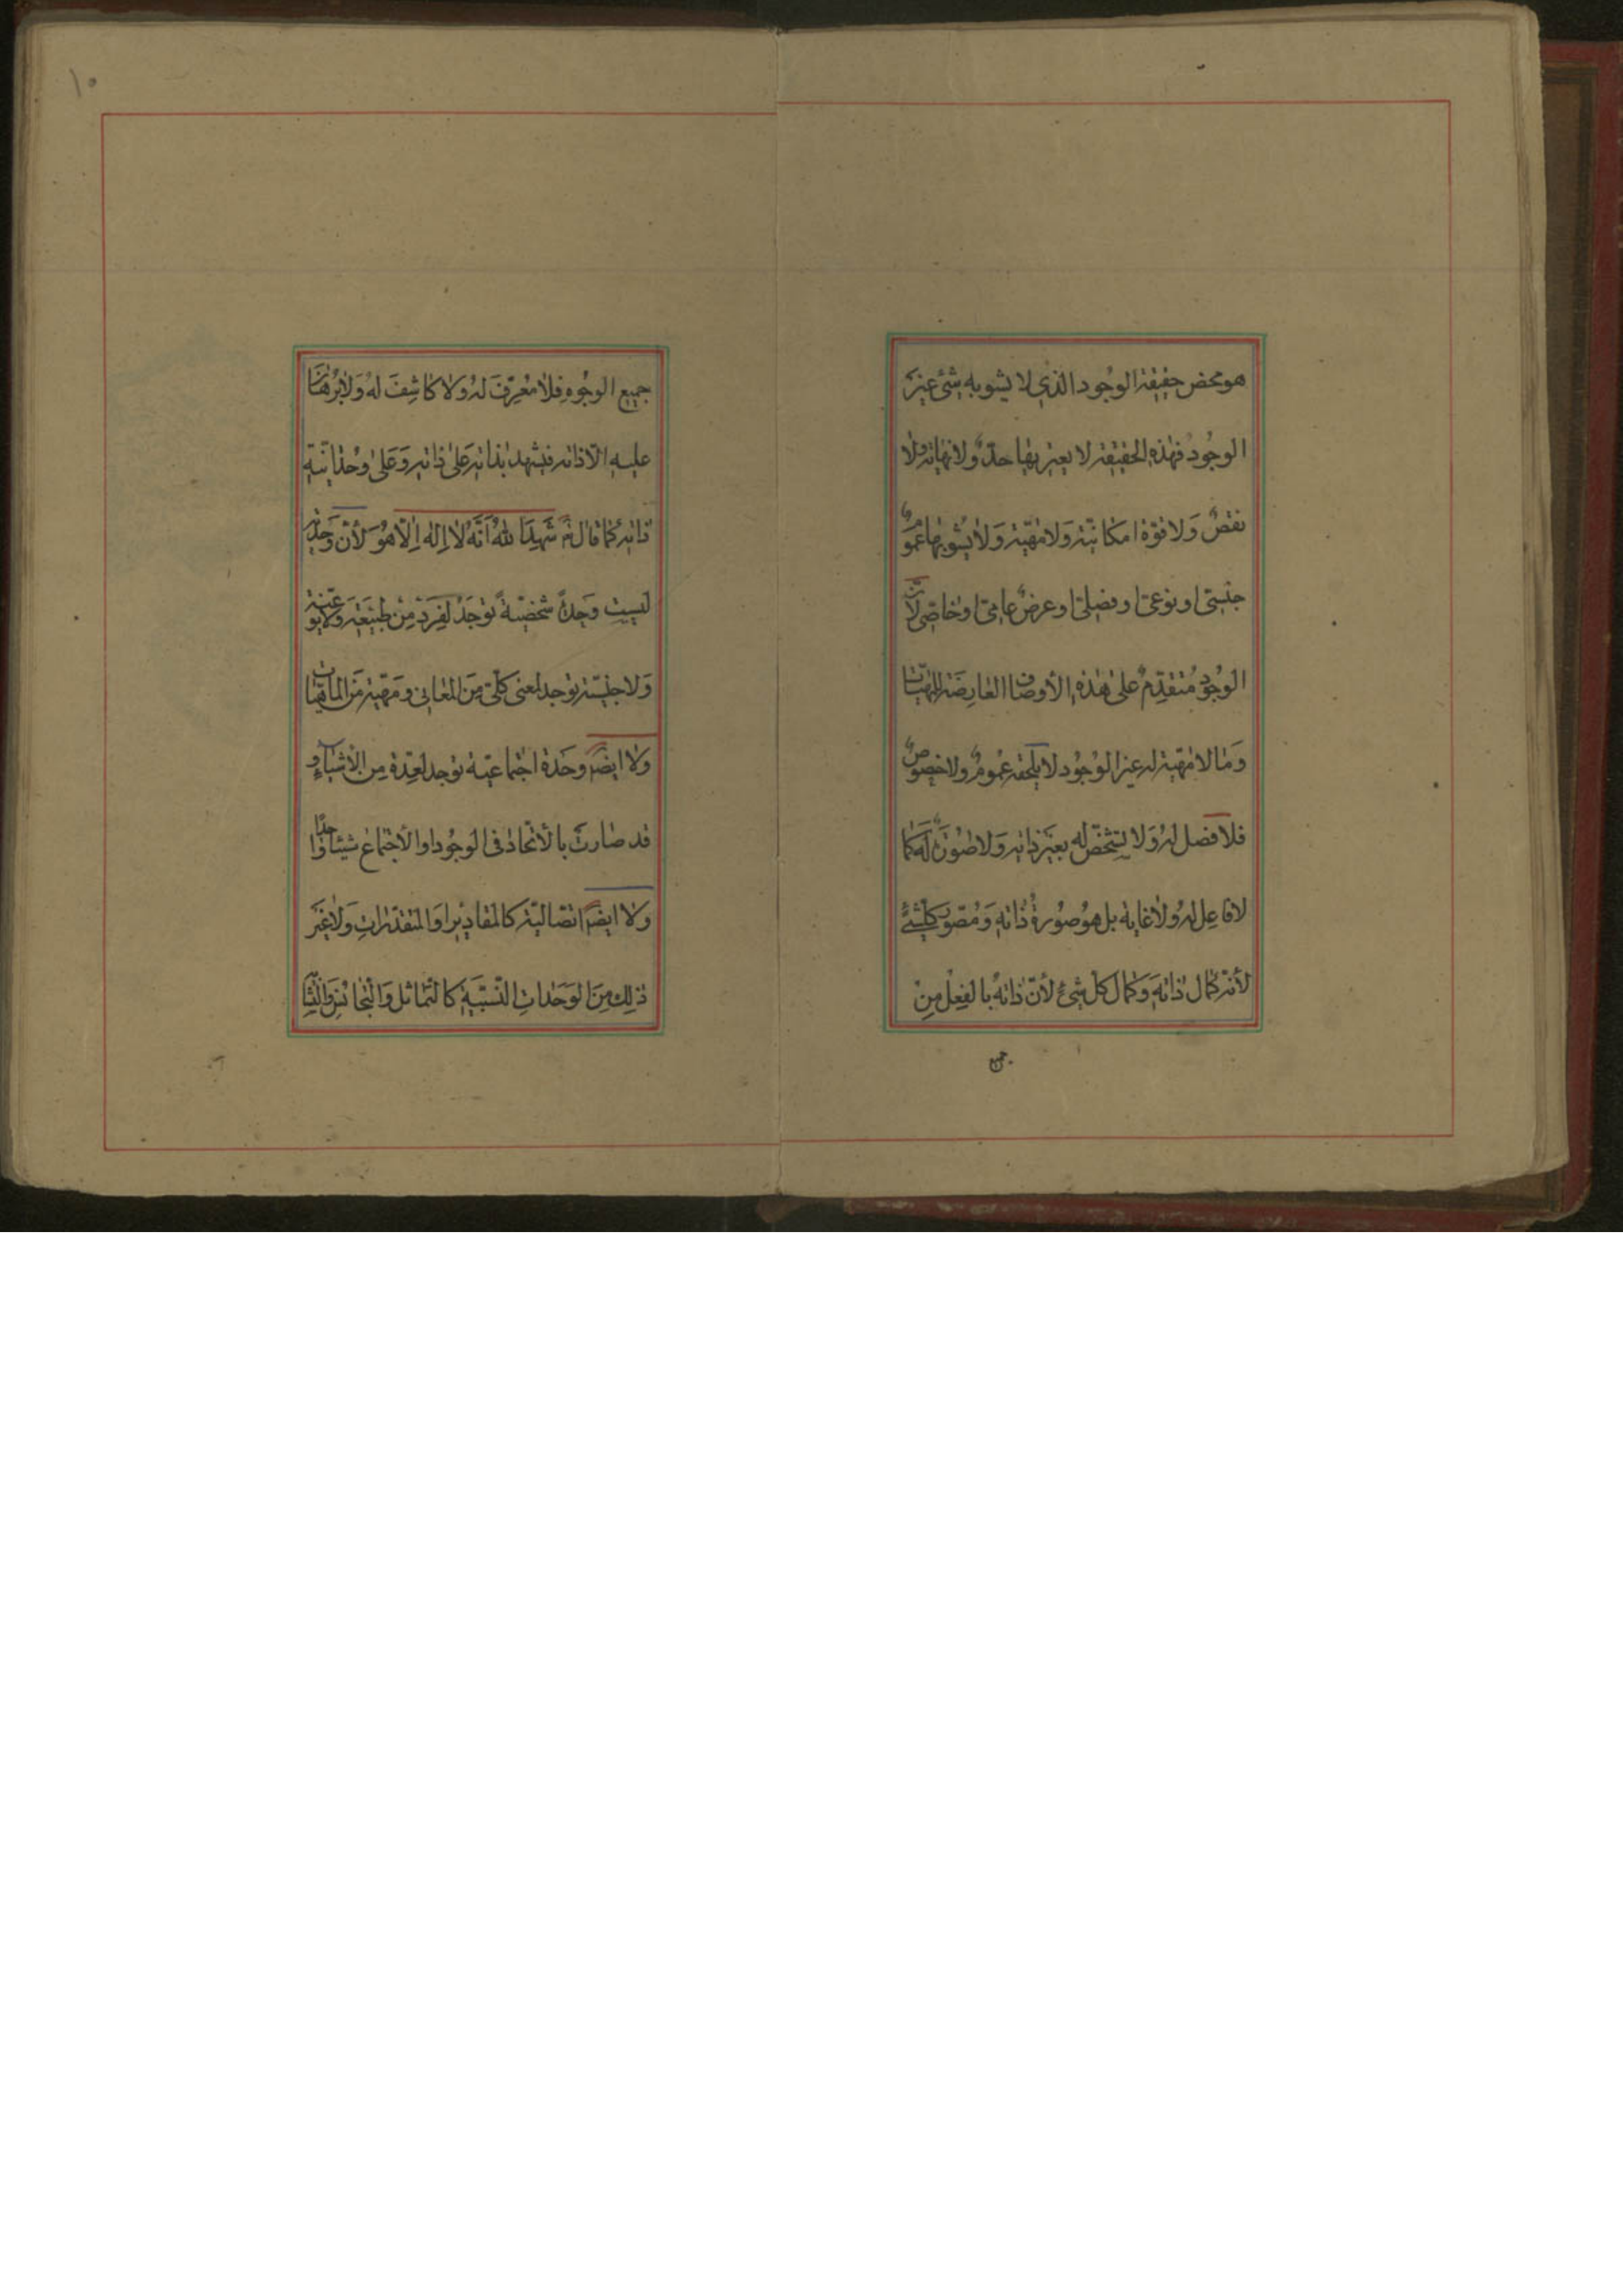 هو محض حقيقة الوجود الذي لا يشوبه شئ غير
الوجود فهذه الحقيقة لا يعتريها حدّ ولا نهاية ولا
نقص ولا قوّة امكانيّة ولا مهيّة ولا يشوبها عموم
جنسيّ او نوعيّ او فصليّ او عرض عاميّ او خاصّي لأنّ
الوجود متقدّم على هذه الأوصاف العارضة للمهيّات
وما لا مهيّة له غير الوجود لا يلحقه عموم ولا خصوص
فلا فصل له ولا تشخّص له بغير ذاته ولا صورة له كما
لا فاعل له ولا غاية بل هو صورة ذاته ومصوّر كلّ شئ
لأنّه كمال ذاته وكمال كلّ شئ لأنّ ذاته بالفعل من
جميع
١٠
جميع الوجوه فلا معرّف له ولا كاشف له ولا برهان
عليه الّا ذاته فيشهد بذاته على ذاته وعلى وحدانيّة
ذاته كما قال شهد الله أنّه لا إله إلّا هو لأنّ وحدته
ليست وحدة شخصيّة توجد لفرد من طبيعة ولا نوعيّة
ولا جنسيّة توجد لمعنى كلّيّ من المعاني ومهيّة من الماهيّات
ولا ايضاً وحدة اجتماعيّة توجد لعدّة من الأشياء و
قد صارت بالأتّحاد في الوجود او الأجتماع شيئاً واحدًا
ولا ايضاً اتصاليّة كالمقادير او المتقدّرات ولا غير
ذلك من الوحدات النّسبيّة كالتّماثل والتّجانس والتّشابه